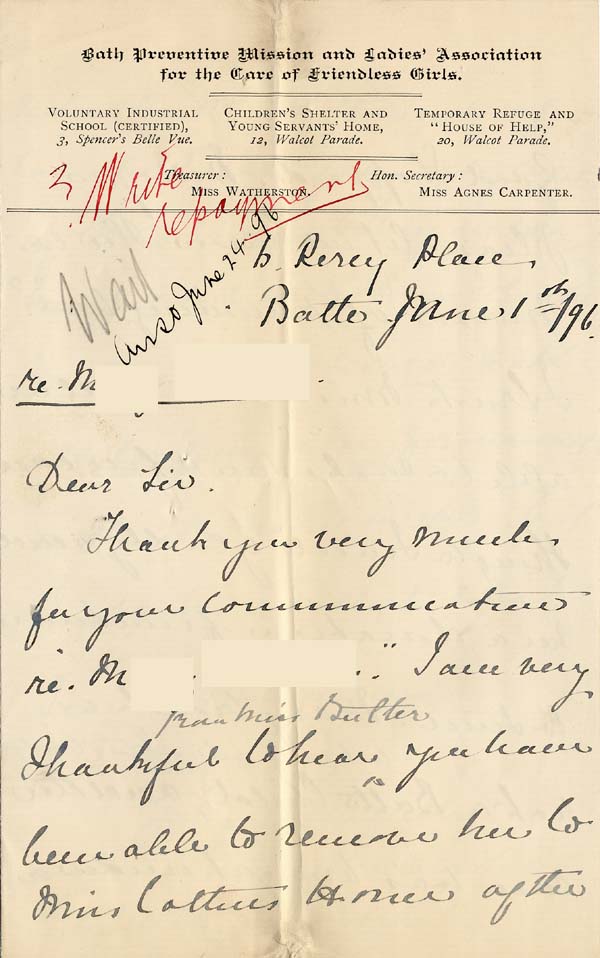 Bath Preventive Mission and Ladies' Association
for the Care of Friendless Girls.
VOLUNTARY INDUSTRIAL
SCHOOL (CERTIFIED),
3, Spencer's Belle Vue.
CHILDREN'S SHELTER AND
YOUNG SERVANTS' HOME,
12, Walcot Parade.
TEMPORARY REFUGE AND
"HOUSE OF HELP,"
20, Walcot Parade.
Treasurer:
MISS WATHERSTON.
Hon. Secretary:
MISS AGNES CARPENTER.
? Write
repayment
Wait
Ansd June 24. 96
6. Percy Place,
Bath June 1st/96.
re. M
Dear Sir.
Thank you very much
for your communication
re. M . I am very
from Miss Butter
thankful to hear you have
been able to remove her to
Miss Cotters Home after